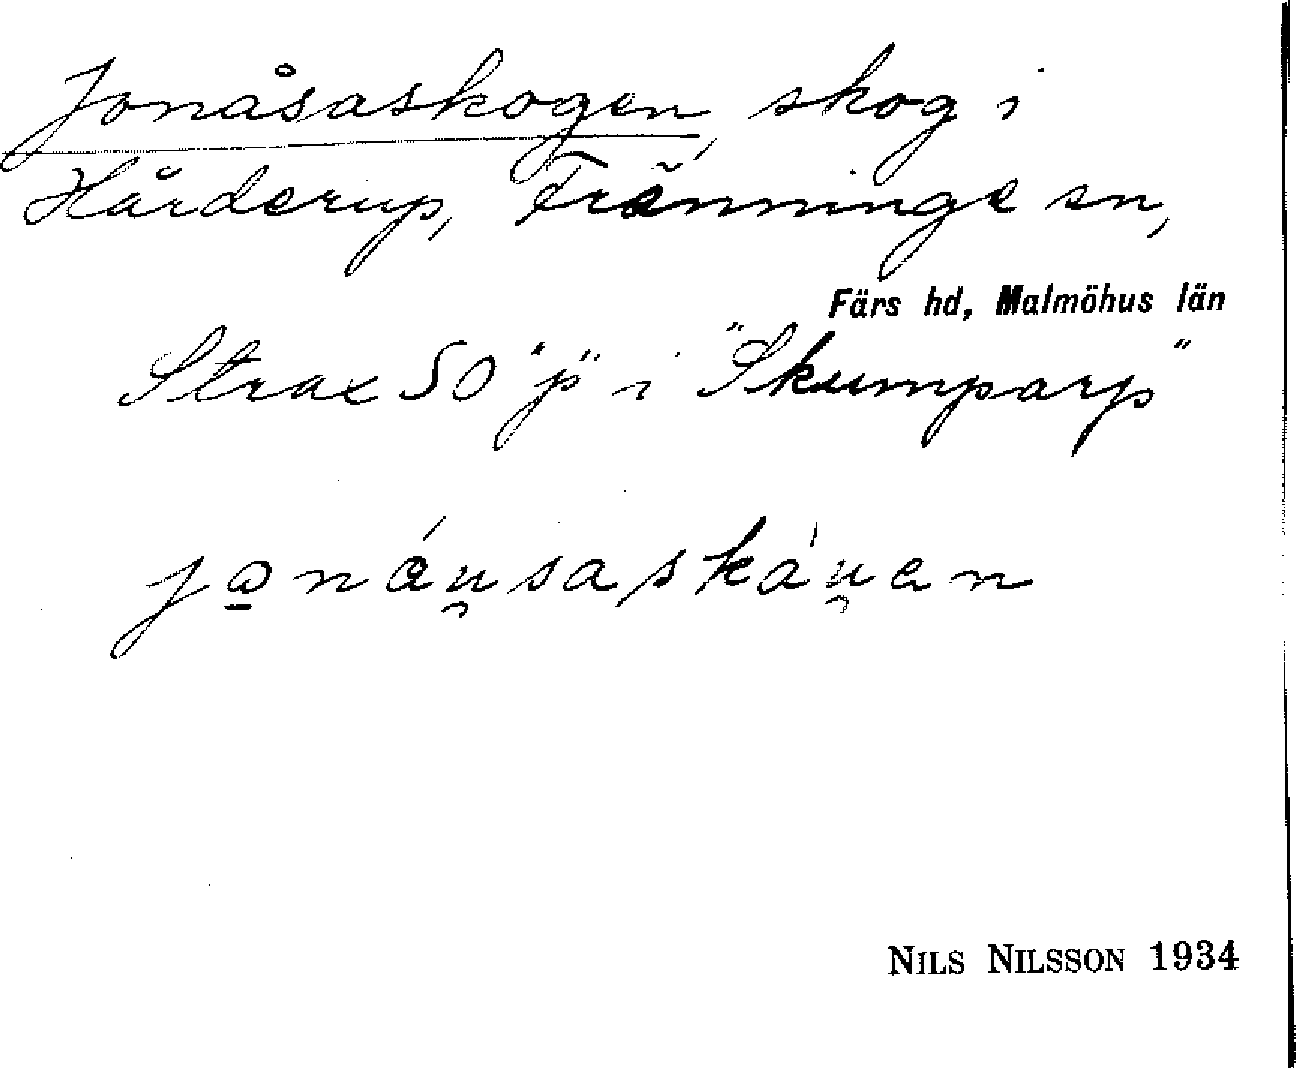 Jonåsaskogen, skog i
Hårderup, Fränninge sn,
Färs hd, Malmöhus län
Strax SO "p" i "Skumparp"
jo̲náu̯saskáu̯en
NILS NILSSON 1934